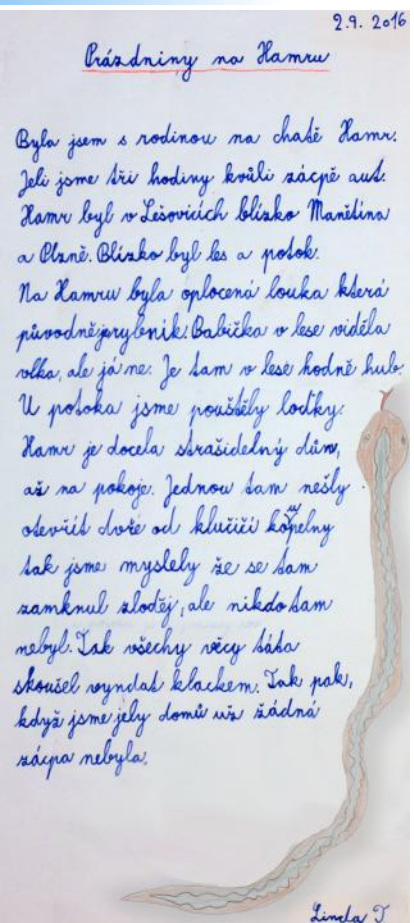 2.9. 2016
Prázdniny na Hamru
Byla jsem s rodinou na chatě Hamr.
Jeli jsme tři hodiny kvůli zácpě aut.
Hamr byl v Lešovicích blízko Manětína
a Plzně. Blízko byl les a potok.
Na Hamru byla oplocená louka která
původnějerybník. Babička v lese viděla
vlka, ale já ne. Je tam v lese hodně hub.
U potoka jsme pouštěly loďky.
Hamr je docela strašidelný dům,
až na pokoje. Jednou tam nešly
otevřít dvoře od klučičí koupelny
tak jsme myslely že se tam
zamknul zloděj, ale nikdo tam
nebyl. Tak všechy věcy táta
skoušel vyndat klackem. Tak pak,
když jsme jely domů už žádná
zácpa nebyla.
Linda T